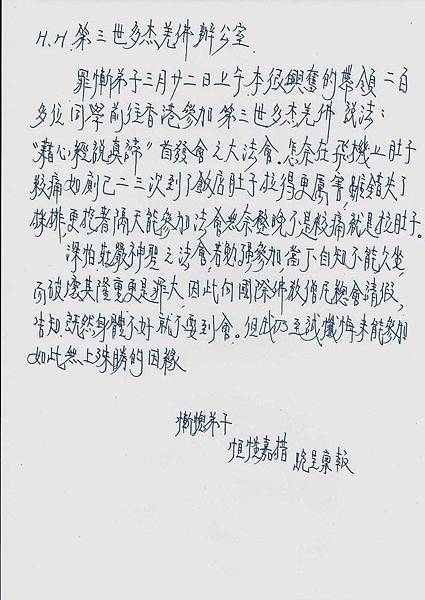 H.H.第三世多杰羌佛辦公室
罪慚弟子三月廿二日上午本很興奮的帶領二百
多位同學前往香港參加第三世多杰羌佛說法：
“藉心經說真諦”首發會之大法會，怎奈在飛機上肚子
絞痛如廁已二三次到了飯店肚子拉得更厲害，雖錯失了
抱著隔天能參加法會無奈整晚不是絞痛就是拉肚子。
深怕莊嚴神聖之法會，若勉強參加，當下自知不能久坐，
而破壞其隆重更是罪大，因此向國際佛教僧尼總會請假，
告知既然身體不好就不要到會。但我乃至誠懺悔未能參加
如此無上殊勝的因緣
慚愧弟子
恒嘉措 跪呈稟報